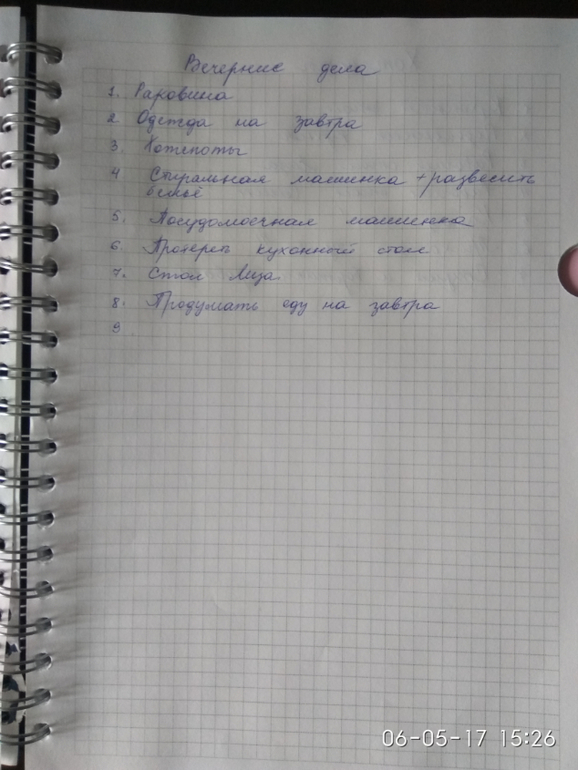 Вечерние дела
1. Раковина
2. Одежда на завтра
3. Котепоты
4 Стиральная машинка + развесить
бельё
5. Посудомоечная машинка
6. Протереть кухонный стол
7. Стол Лиза
8. Продумать еду на завтра
9
06-05-17 15:26